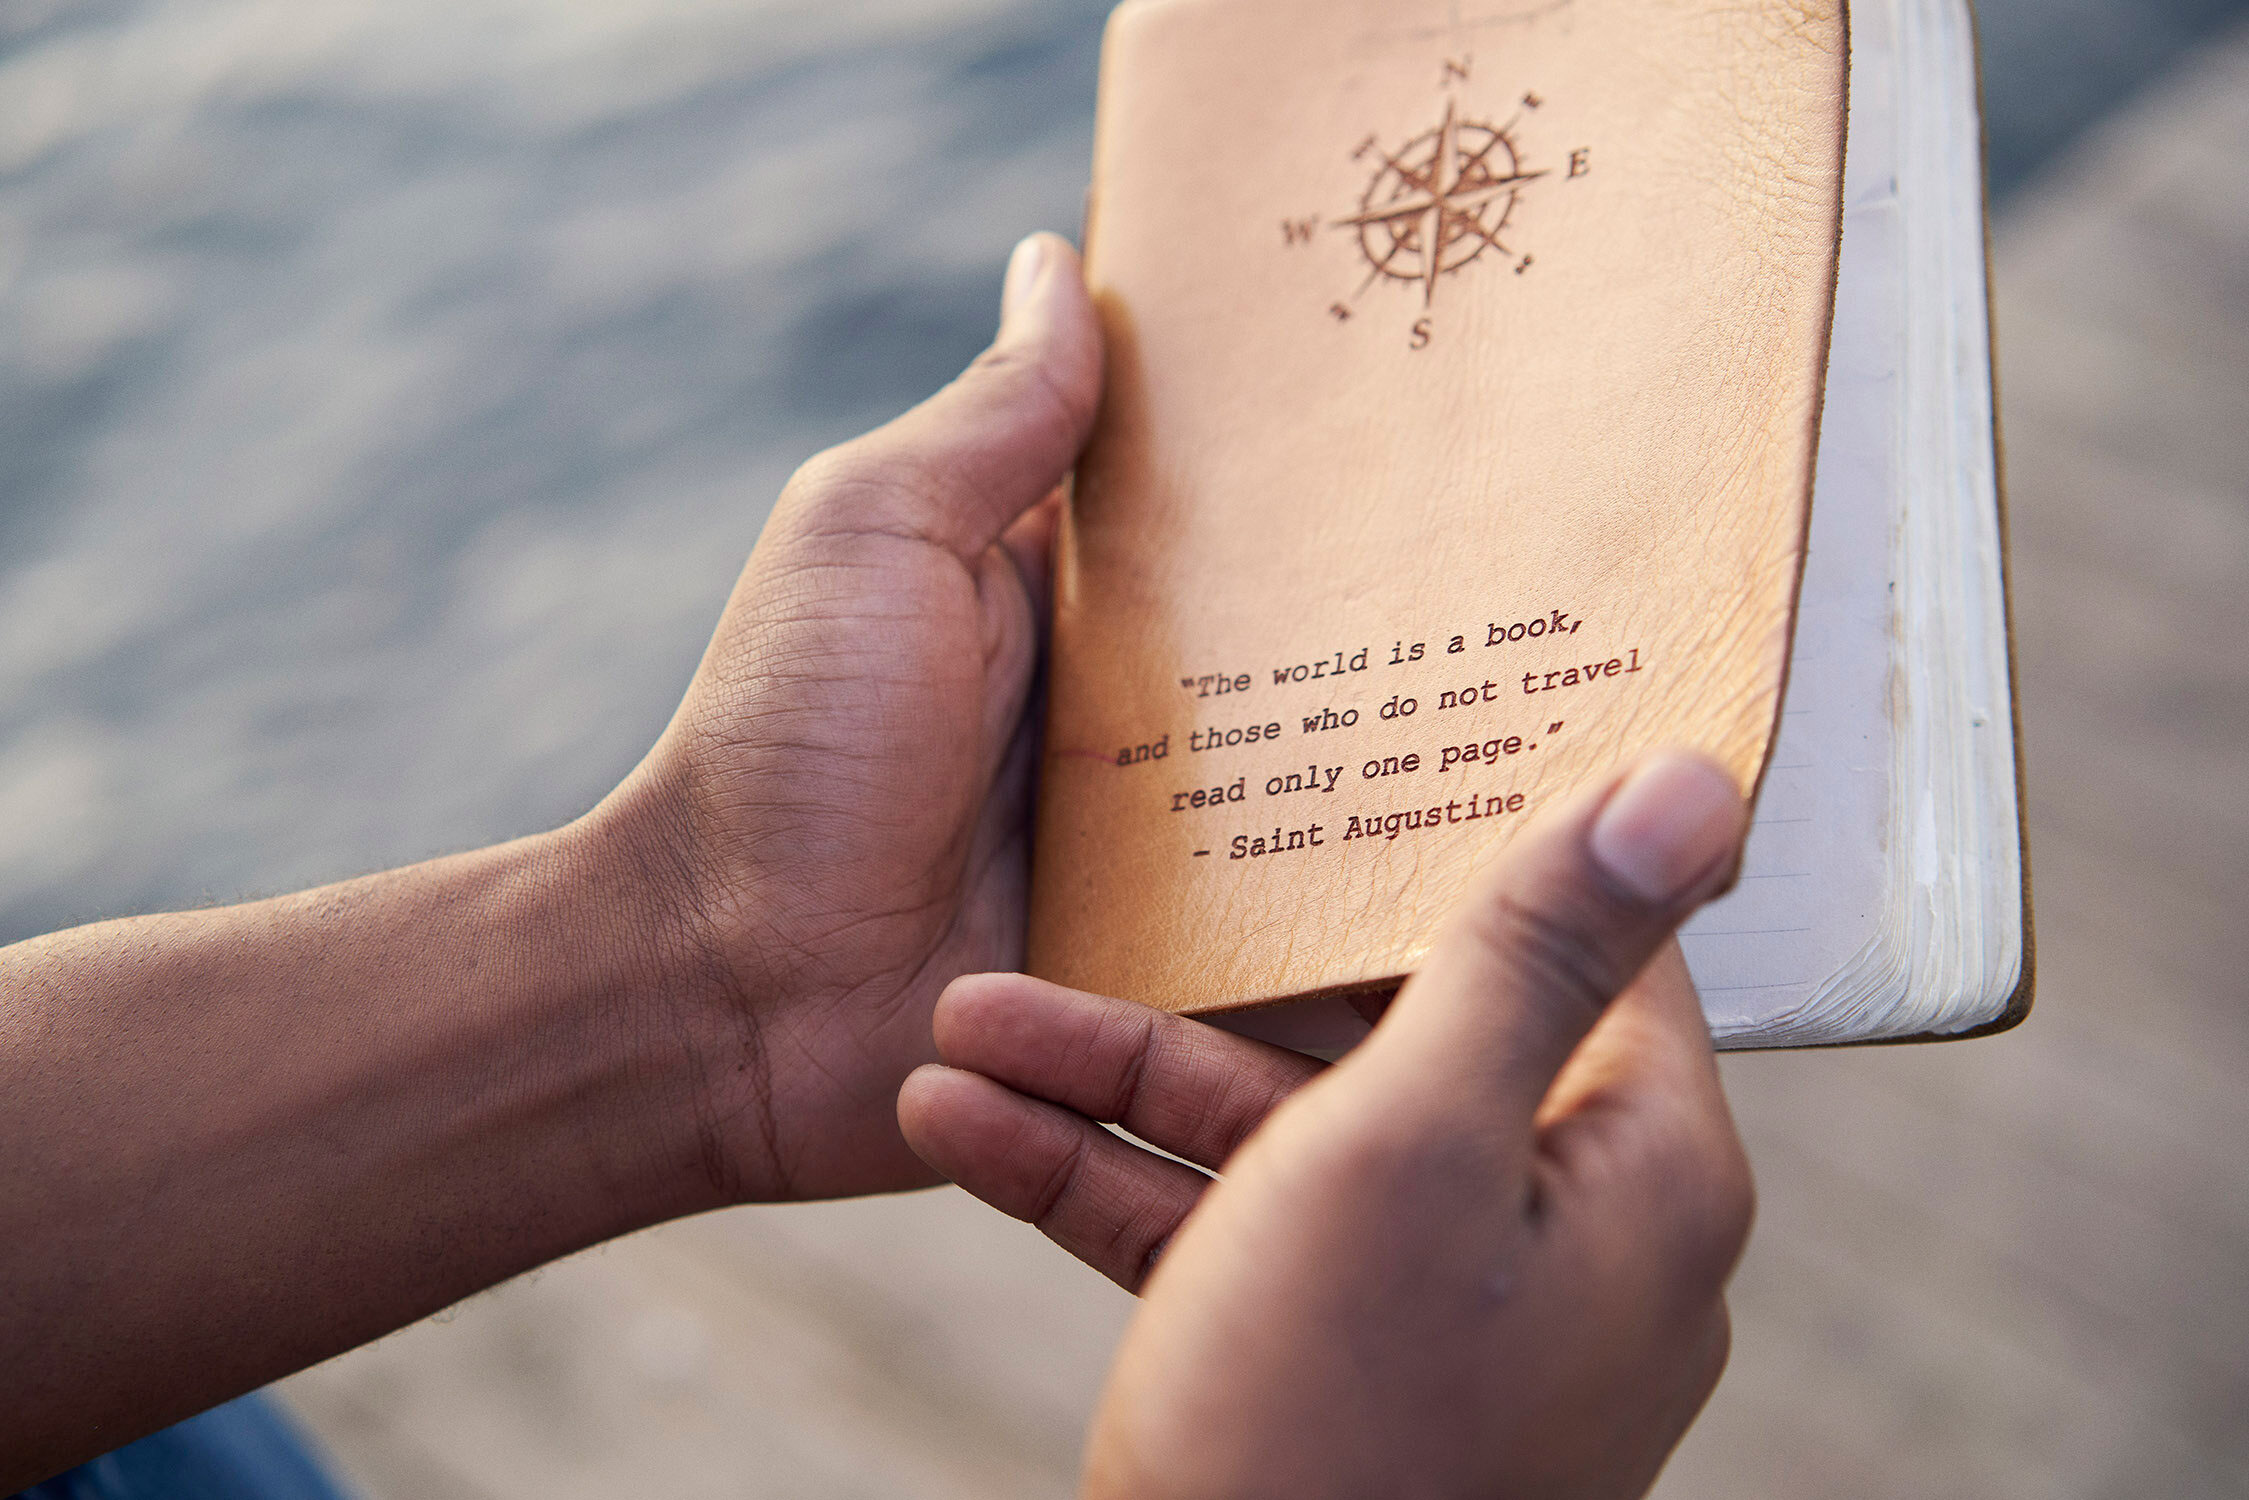 N
E
W
S
"The world is a book,
and those who do not travel
read only one page.”
– Saint Augustine